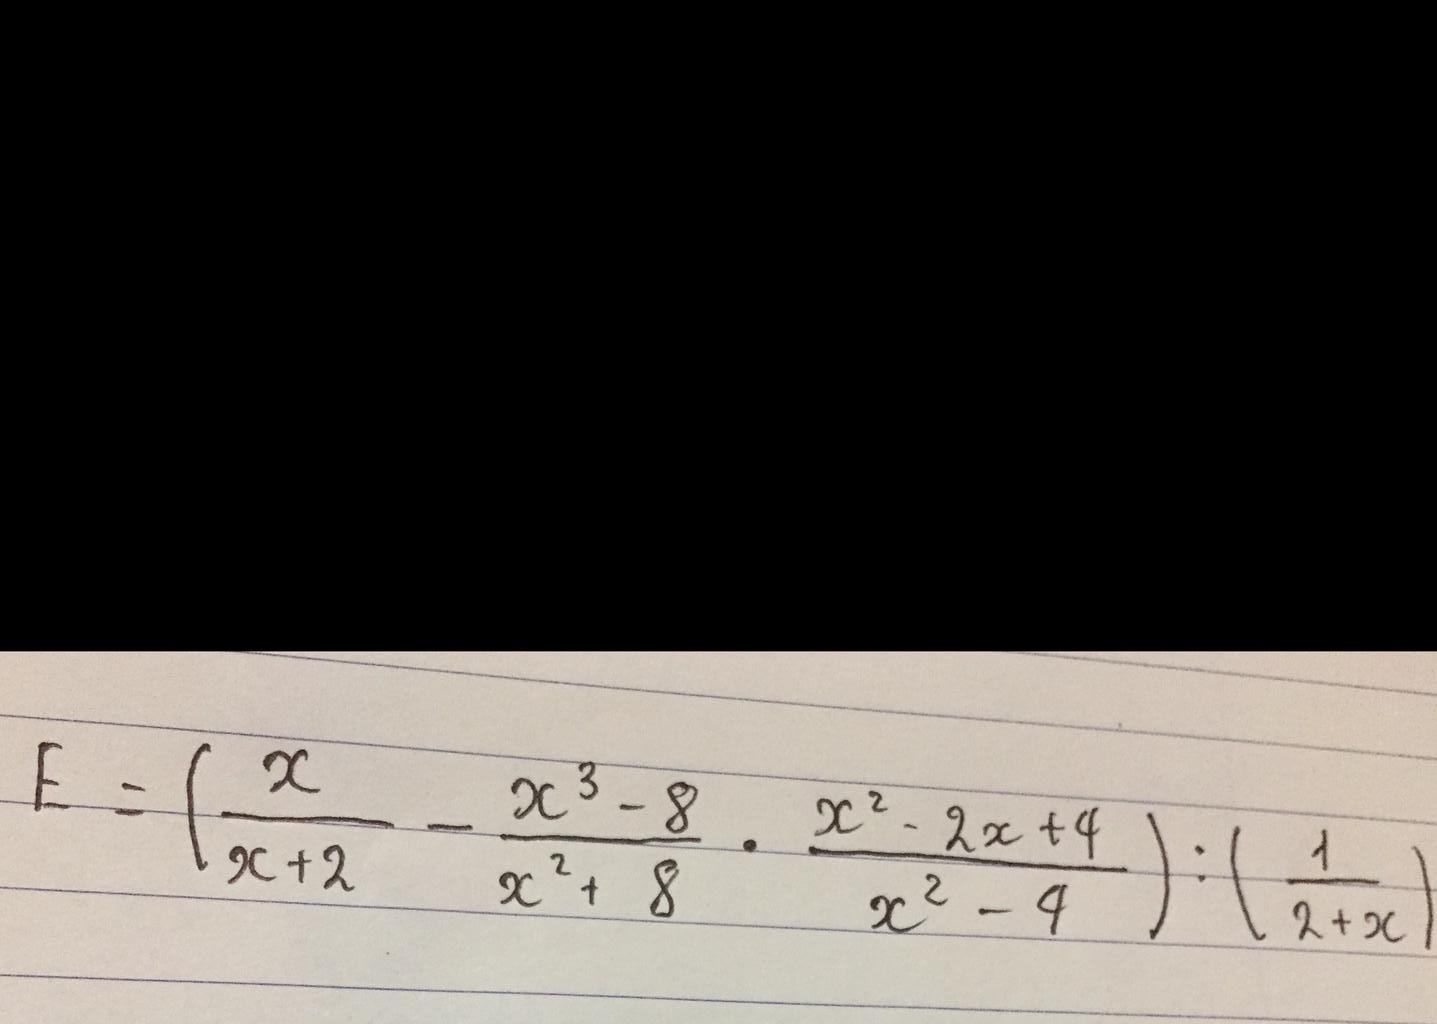 E = (x/(x+2) - (x³ - 8)/(x² + 8) · (x² - 2x + 4)/(x² - 4)) : (1/(2 + x))